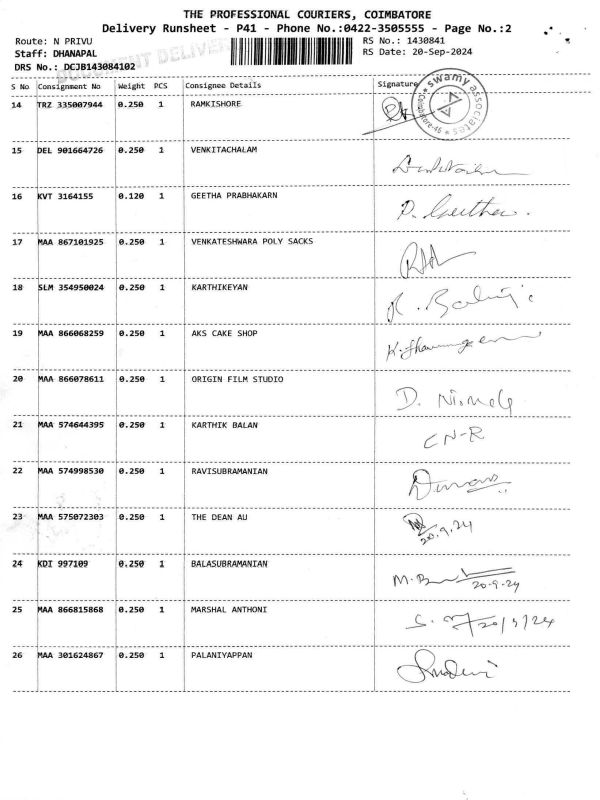 THE PROFESSIONAL COURIERS, COIMBATORE
Delivery Runsheet - P41 - Phone No.:0422-3505555 - Page No.:2
Route: N PRIVU RS No.: 1430841
Staff: DHANAPAL RS Date: 20-Sep-2024
DRS No.: DCJB143084102
DOCUMENT DELIVERY
S No Consignment No Weight PCS Consignee Details Signature
swamy associates * Coimbatore-45 *
14 TRZ 335007944 0.250 1 RAMKISHORE
15 DEL 901664726 0.250 1 VENKITACHALAM
16 KVT 3164155 0.120 1 GEETHA PRABHAKARN P. Geetha.
17 MAA 867101925 0.250 1 VENKATESHWARA POLY SACKS
18 SLM 354950024 0.250 1 KARTHIKEYAN
19 MAA 866068259 0.250 1 AKS CAKE SHOP
20 MAA 866078611 0.250 1 ORIGIN FILM STUDIO
21 MAA 574644395 0.250 1 KARTHIK BALAN CN-R
22 MAA 574998530 0.250 1 RAVISUBRAMANIAN
23 MAA 575072303 0.250 1 THE DEAN AU 20.9.24
24 KDI 997109 0.250 1 BALASUBRAMANIAN 20-9-24
25 MAA 866815868 0.250 1 MARSHAL ANTHONI 20/9/24
26 MAA 301624867 0.250 1 PALANIYAPPAN